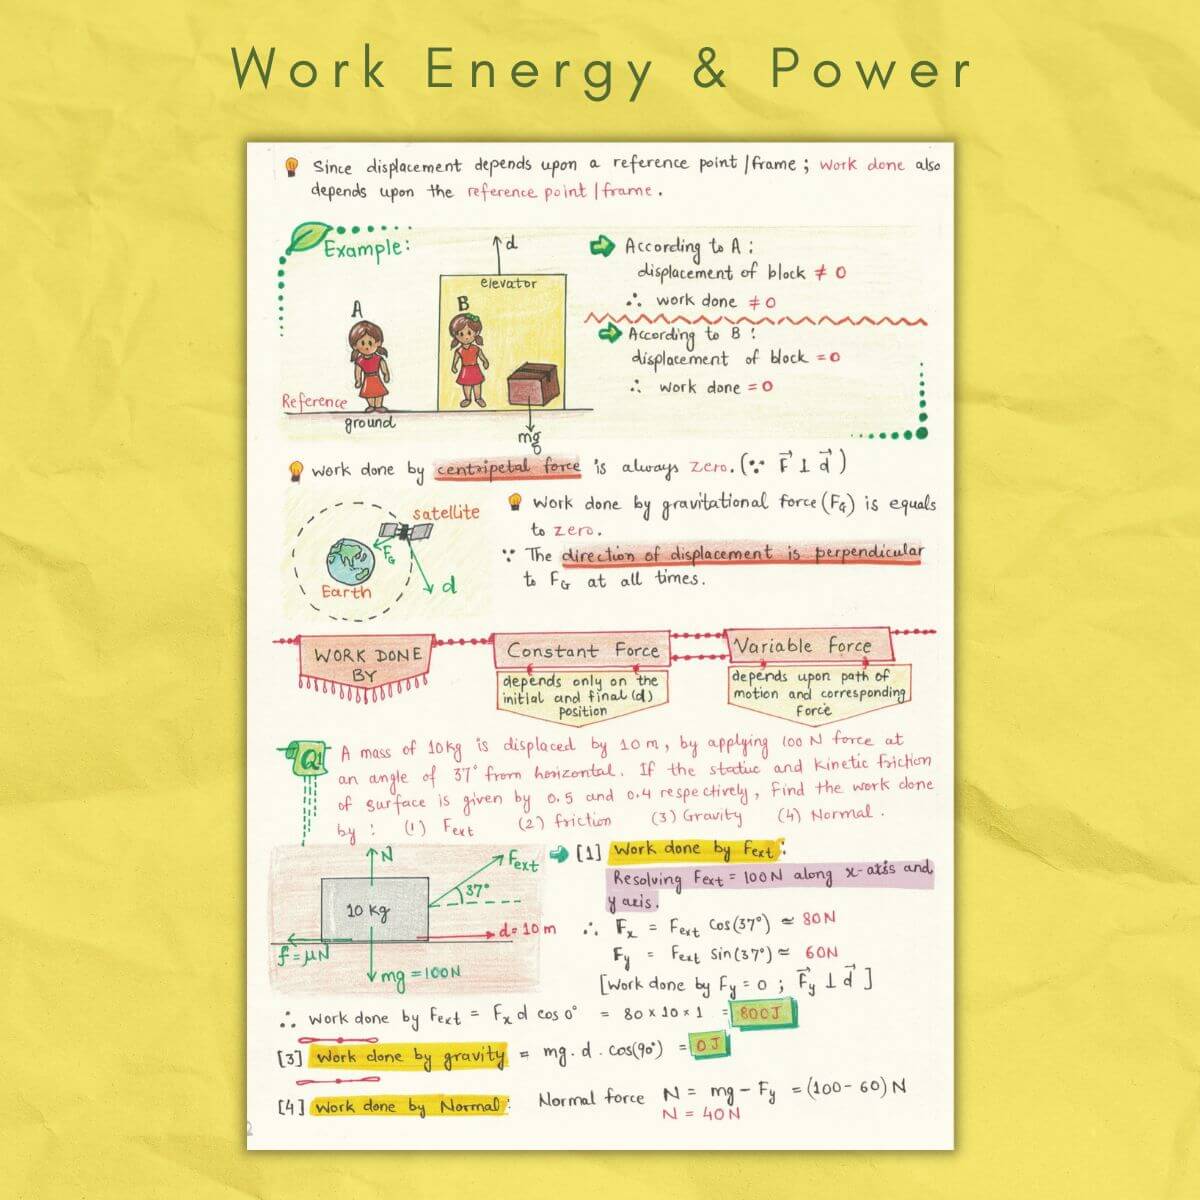 Work Energy & Power
Since displacement depends upon a reference point/frame; work done also
depends upon the reference point/frame.
Example:
d
elevator
A
B
Reference
ground
mg
According to A:
displacement of block ≠ 0
∴ work done ≠ 0
According to B:
displacement of block = 0
∴ work done = 0
work done by centripetal force is always zero. (∵ F⃗ ⊥ d⃗)
satellite
FG
Earth
d
Work done by gravitational force (FG) is equals
to zero.
∵ The direction of displacement is perpendicular
to FG at all times.
WORK DONE
BY
Constant Force
depends only on the
initial and final (d)
position
Variable Force
depends upon path of
motion and corresponding
Force
Q1
A mass of 10kg is displaced by 10m, by applying 100 N force at
an angle of 37° from horizontal. If the static and kinetic friction
of surface is given by 0.5 and 0.4 respectively, Find the work done
by: (1) Fext (2) friction (3) Gravity (4) Normal.
N
Fext
37°
10 kg
d=10m
f=μN
mg=100N
[1] Work done by Fext:
Resolving Fext = 100N along x-axis and
y axis.
∴ Fx = Fext Cos(37°) ≈ 80N
Fy = Fext Sin(37°) ≈ 60N
[Work done by Fy = 0 ; F⃗y ⊥ d⃗ ]
∴ Work done by Fext = Fx d cos 0° = 80×10×1 = 800J
[3] Work done by gravity = mg. d. cos(90°) = 0J
[4] Work done by Normal: Normal force N = mg - Fy = (100-60)N
N = 40N
2